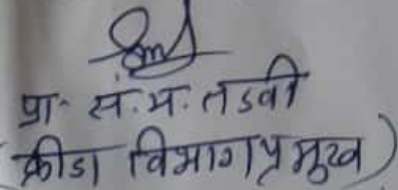 प्रा. सं. भ. तडवी
(क्रीडा विभाग प्रमुख)